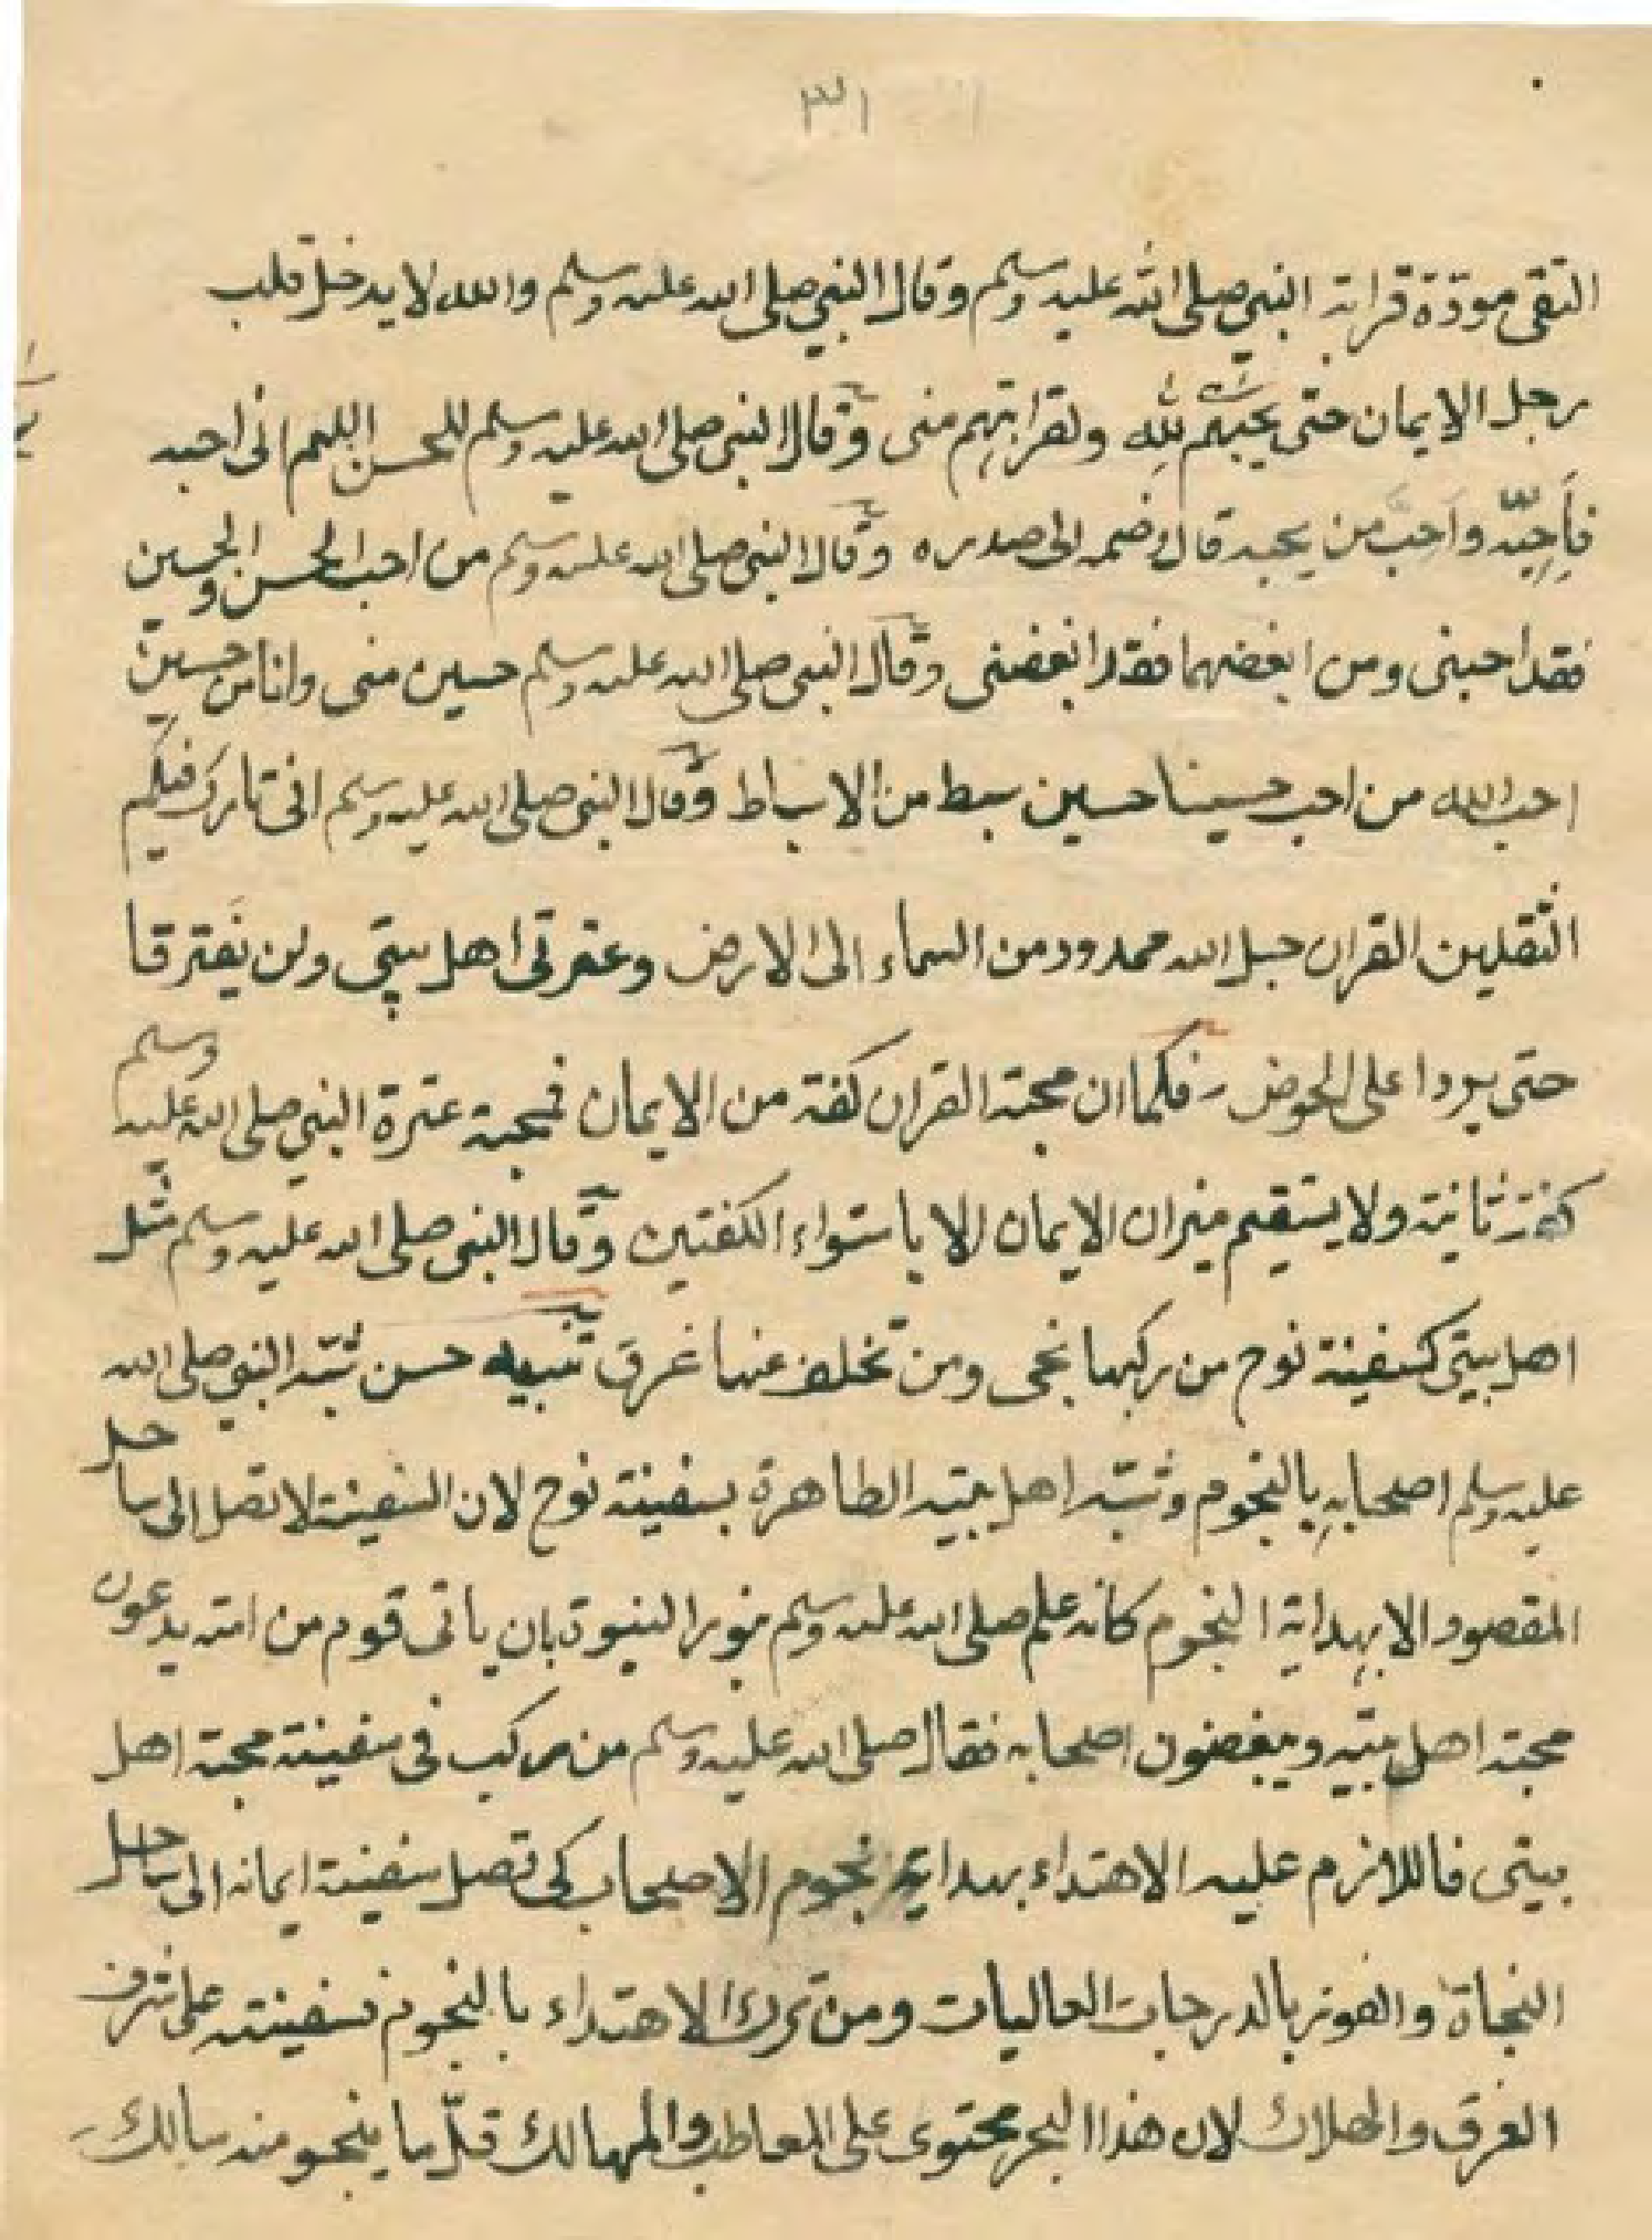 ٣١
التقى مودة قرابة النبي صلى الله عليه وسلم وقال النبي صلى الله عليه وسلم والله لا يدخل قلب
رجل الايمان حتى يحبهم لله ولقرابتهم منى وقال النبي صلى الله عليه وسلم للحسن اللهم انى احبه
فأحِبّه واحبَّ من يحبه قال وضمه الى صدره وقال النبي صلى الله عليه وسلم من احب الحسن والحسين
فقد احبنى ومن ابغضهما فقد ابغضنى وقال النبي صلى الله عليه وسلم حسين منى وانا من حسين
احب الله من احب حسينا حسين سبط من الاسباط وقال النبي صلى الله عليه وسلم انى تارك فيكم
الثقلين القران حبل الله ممدود من السماء الى الارض وعترتى اهل بيتى ولن يَفترقا
حتى يردا على الحوض فكما ان محبة القران كفة من الايمان فمحبة عترة النبي صلى الله عليه وسلم
كفة ثانية ولا يستقيم ميزان الايمان الا باستواء الكفتين وقال النبي صلى الله عليه وسلم مثل
اهل بيتى كسفينة نوح من ركبها نجى ومن تخلف عنها غرق تنبيه حسن شبّه النبي صلى الله
عليه وسلم اصحابهِ بالنجوم وشبّه اهل بيته الطاهرة بسفينة نوح لان السفينة لا تصل الى ساحل
المقصود الا بهداية النجوم كانه علم صلى الله عليه وسلم بنور النبوة بان ياتى قوم من امته يدعون
محبة اهل بيته ويبغضون اصحابه فقال صلى الله عليه وسلم من ركب فى سفينة محبة اهل
بيتى فاللازم عليه الاهتداء بهداية نجوم الاصحاب كى تصل سفينة ايمانه الى ساحل
النجاة والفوز بالدرجات العاليات ومن ترك الاهتداء بالنجوم فسفينته على شرف
الغرق والهلاك لان هذا البحر محتوى على المعاطب والمهالك قلّ ما ينجو منه سالك